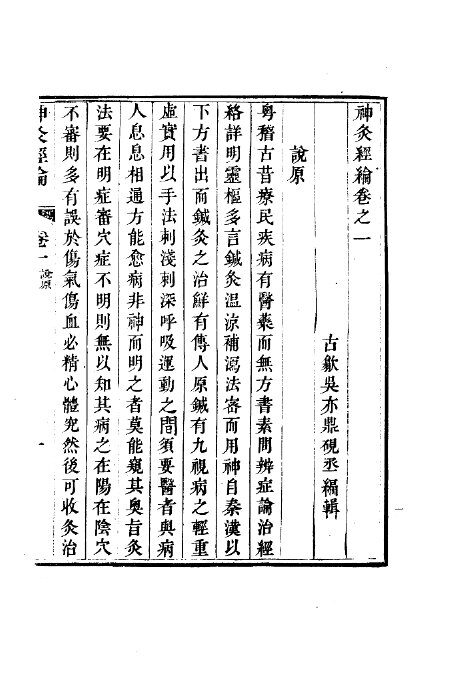 神灸經綸卷之一
古歙吳亦鼎硯丞編輯
說原
粵稽古昔療民疾病有醫藥而無方書素問辨症論治經
絡詳明靈樞多言鍼灸溫涼補瀉法審而用神自秦漢以
下方書出而鍼灸之治鮮有傳人原鍼有九視病之輕重
虛實用以手法刺淺刺深呼吸運動之間須要醫者與病
人息息相通方能愈病非神而明之者莫能窺其奧旨灸
法要在明症審穴症不明則無以知其病之在陽在陰穴
不審則多有誤於傷氣傷血必精心體究然後可收灸治
神灸經綸
卷一
說原
一